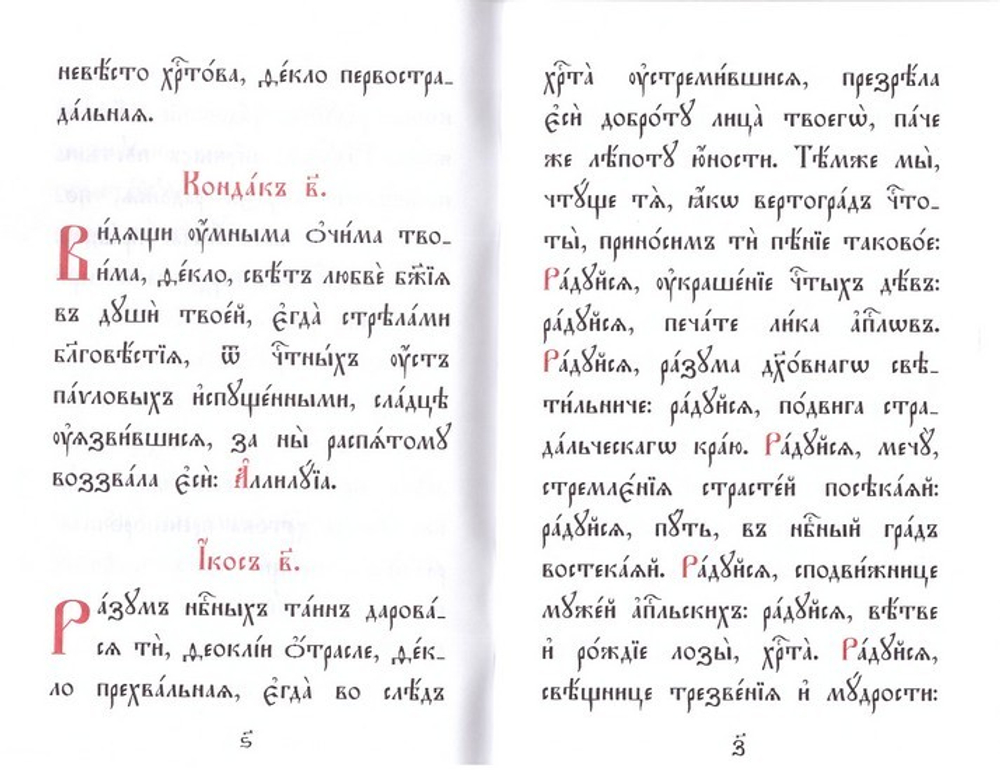 невѣ́сто хрⷭ҇то́ва, ѳе́кло первостра_
да́льнаѧ.
Конда́къ в҃.
Ви́дѧщи ᲂу҆́мныма ѻ҆чи́ма тво_
и́ма, ѳе́кло, свѣ́тъ любвѐ бж҃їѧ
въ дꙋшѝ твое́й, є҆гда̀ стрѣла́ми
бл҃говѣ́стїѧ, ѿ чⷭ҇тны́хъ ᲂу҆́стъ
па́ѵловыхъ и҆спꙋще́нными, сла́дцѣ
ᲂу҆ѧзви́вшисѧ, за ны̀ распѧ́томꙋ
воззва́ла є҆сѝ: А҆ллилꙋ́їа.
І҆́косъ в҃.
Ра́зꙋмъ нбⷭ҇ныхъ та́инъ дарова́_
сѧ тѝ, ѳеоклі́и ѻ҆́трасле, ѳе́к_
ло прехва́льнаѧ, є҆гда̀ во слѣ́дъ
ѕ҃
хрⷭ҇та̀ ᲂу҆стреми́вшисѧ, презрѣ́ла
є҆сѝ добро́тꙋ лица̀ твоегѡ̀, па́че
же лѣ́потꙋ ю҆́ности. Тѣ́мже мы̀,
чтꙋ́ще тѧ̀, ꙗ҆́кѡ вертогра́дъ чⷭ҇то_
ты̀, прино́симъ тѝ пѣ́нїе таково́е:
Ра́дꙋйсѧ, ᲂу҆краше́нїе чⷭ҇тыхъ дѣ́въ:
ра́дꙋйсѧ, печа́те ли́ка а҆пⷭ҇лѡвъ.
Ра́дꙋйсѧ, ра́зꙋма дꙋ҃хо́внагѡ свѣ_
ти́льниче: ра́дꙋйсѧ, по́двига стра_
да́льческагѡ кра́ю. Ра́дꙋйсѧ, мечꙋ̀,
стремле́нїѧ страсте́й посѣка́ѧй:
ра́дꙋйсѧ, пꙋ́ть, въ нбⷭ҇ный гра́дъ
востека́ѧй. Ра́дꙋйсѧ, сподви́жнице
мꙋже́й а҆пⷭ҇льскихъ: ра́дꙋйсѧ, вѣ́тве
и҆ ро́ждїе лозы̀, хрⷭ҇та̀. Ра́дꙋйсѧ,
свѣ́щнице трезве́нїѧ и҆ мꙋ́дрости:
з҃